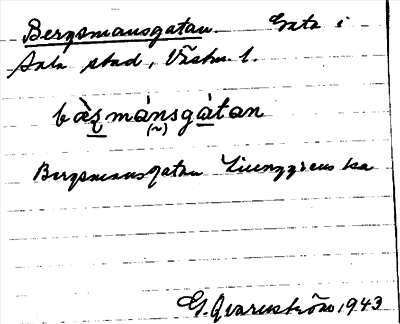 Bergsmansgatan. Gata i
Sala stad, Västm. l.
bàs̱mánsgàtan
(~)
Bergsmansgatan Ljunggrens ka
G. Qvarnström 1943